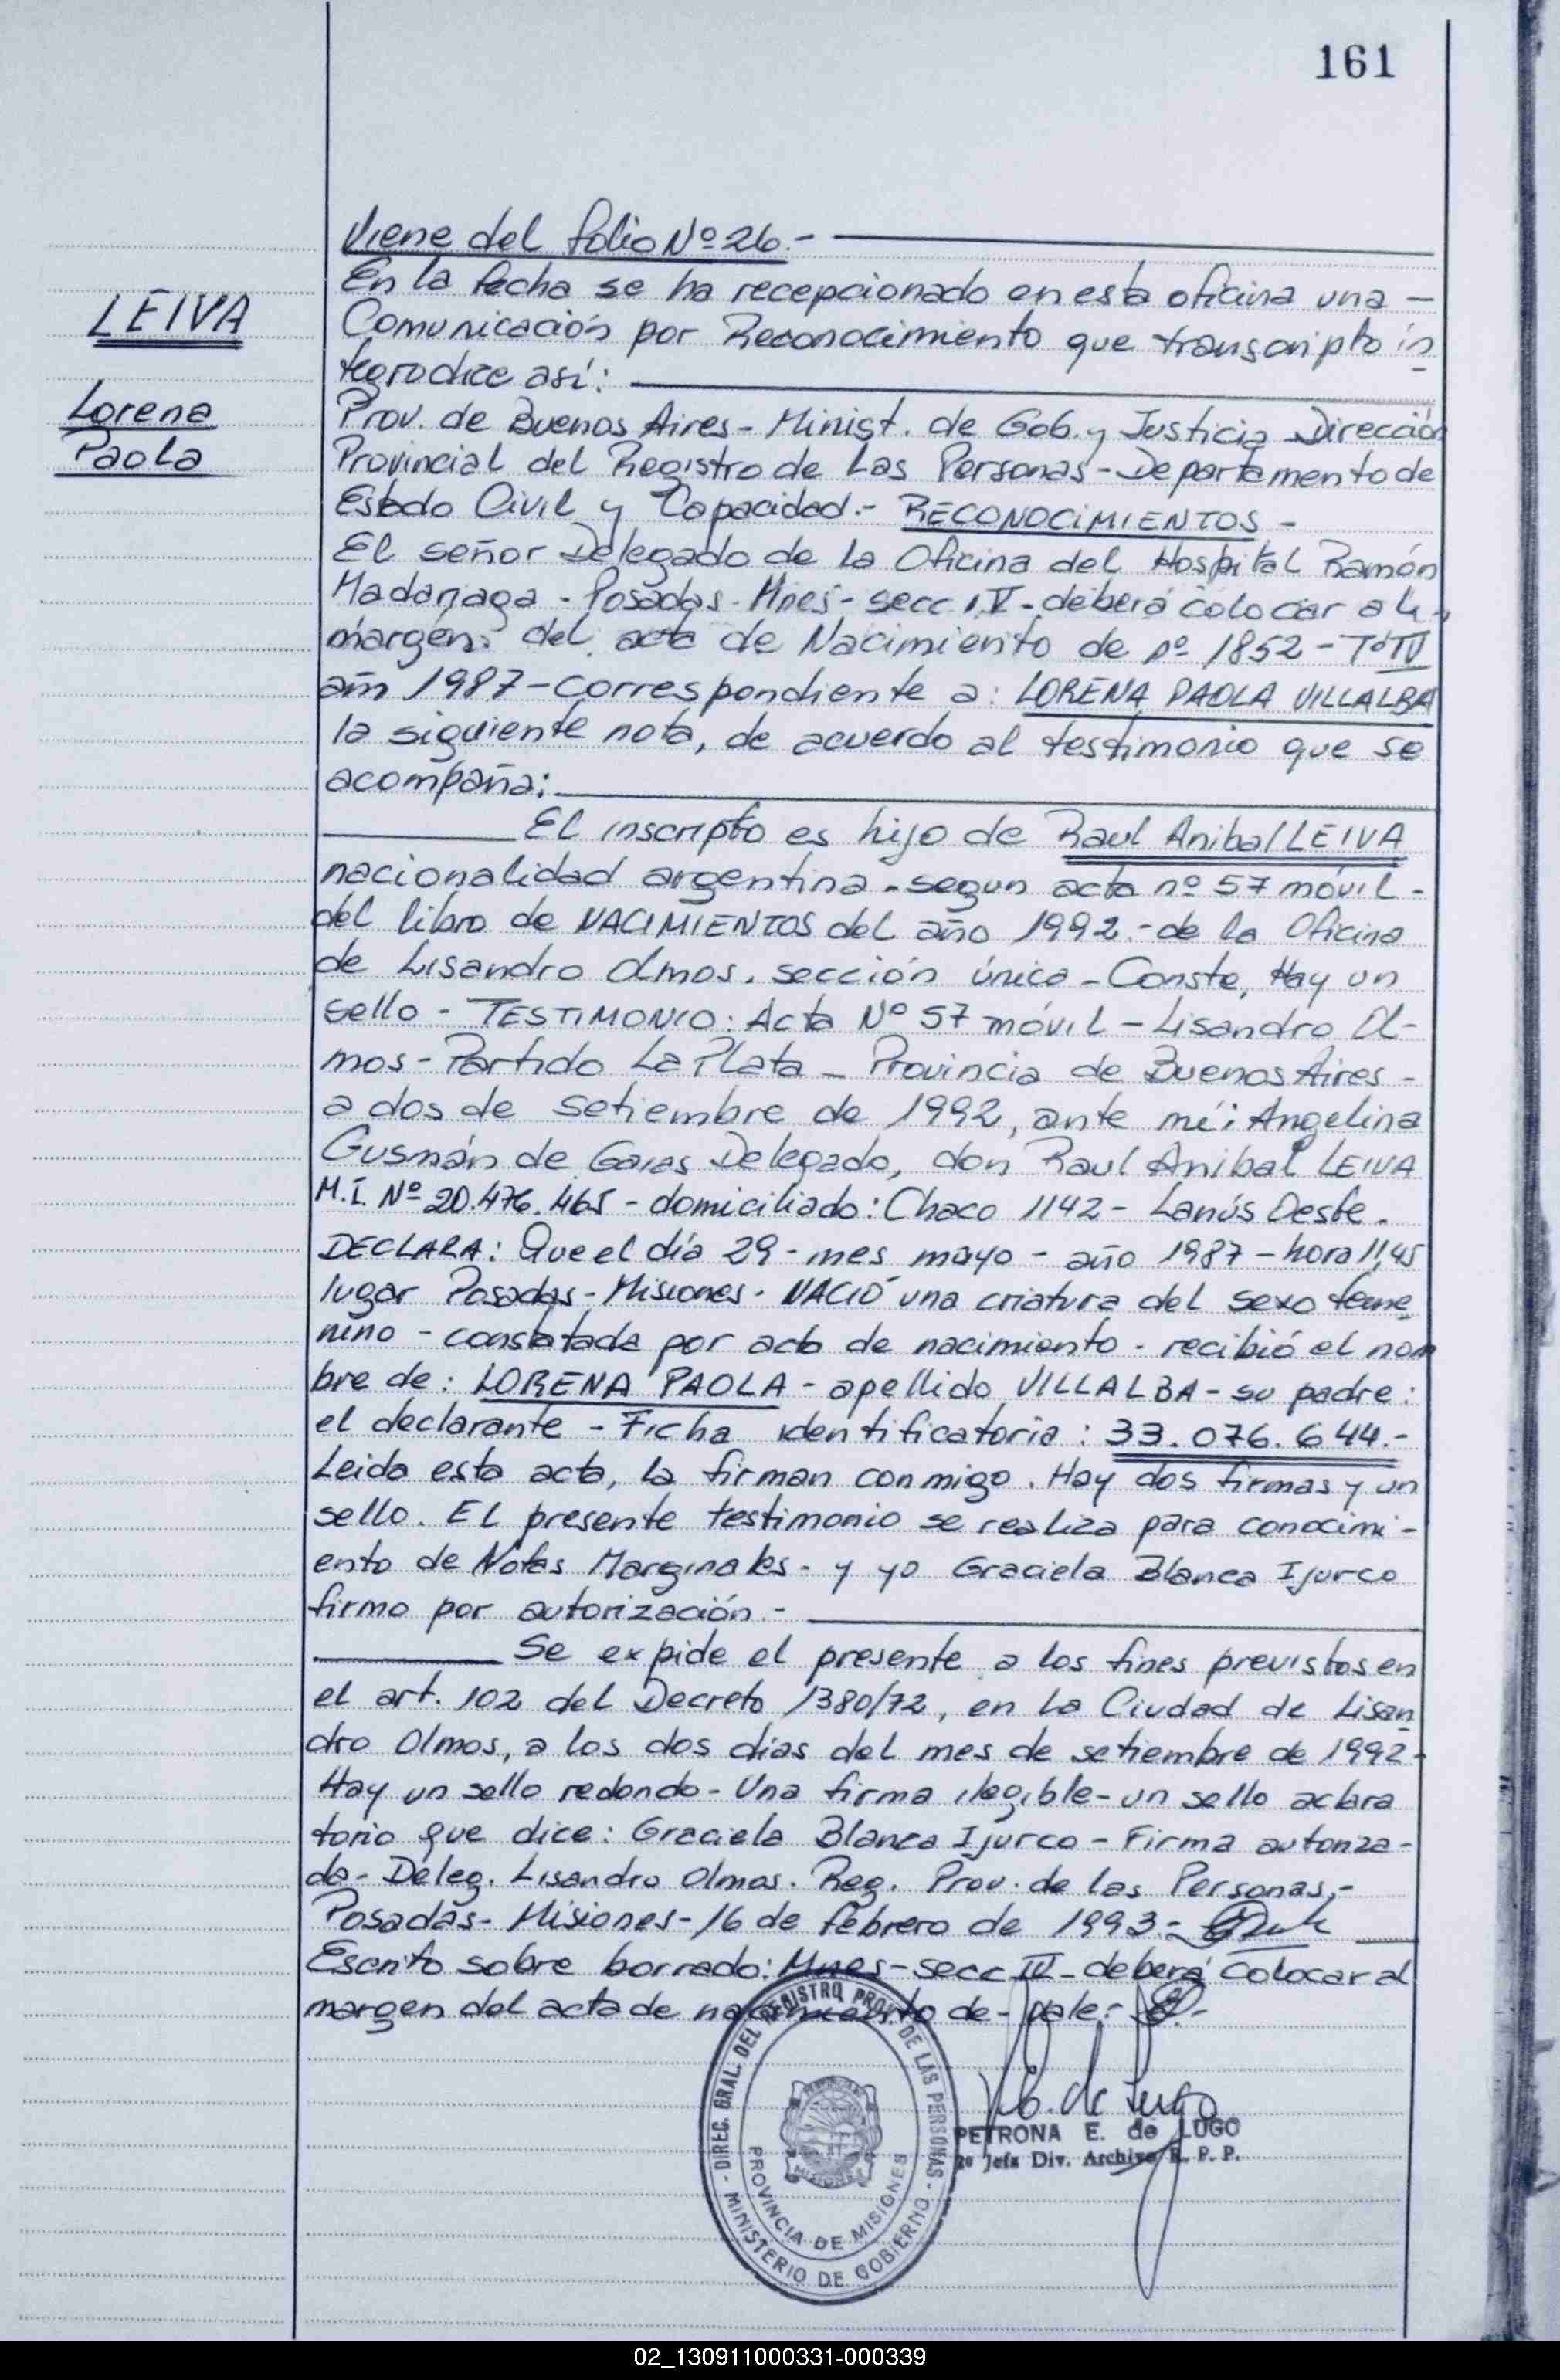 161
Viene del folio Nº 26.-
LEIVA
Lorena
Paola
En la fecha se ha recepcionado en esta oficina una -
Comunicación por Reconocimiento que transcripto ín
tegro dice así:
Prov. de Buenos Aires - Minist. de Gob. y Justicia Dirección
Provincial del Registro de Las Personas - Departamento de
Estado Civil y Capacidad.- RECONOCIMIENTOS -
El señor Delegado de la Oficina del Hospital Ramón
Madariaga - Posadas - Mnes - secc IV - deberá colocar al
margen del acta de Nacimiento de nº 1852 - Tº IV
año 1987 - correspondiente a: LORENA PAOLA VILLALBA
la siguiente nota, de acuerdo al testimonio que se
acompaña:
El inscripto es hijo de Raul Anibal LEIVA
nacionalidad argentina - segun acta nº 57 móvil -
del libro de NACIMIENTOS del año 1992.- de la Oficina
de Lisandro Olmos, sección única - Conste, Hay un
sello - TESTIMONIO: Acta Nº 57 móvil - Lisandro Ol-
mos - Partido La Plata - Provincia de Buenos Aires -
a dos de setiembre de 1992, ante mí: Angelina
Gusmán de Delegado, don Raul Anibal LEIVA
M.I. Nº 20.476.465 - domiciliado: Chaco 1142 - Lanús Oeste.
DECLARA: Que el día 29 - mes mayo - año 1987 - hora 11,45
lugar Posadas - Misiones. NACIÓ una criatura del sexo feme
nino - constatada por acta de nacimiento - recibió el nom
bre de: LORENA PAOLA - apellido VILLALBA - su padre:
el declarante - Ficha identificatoria: 33.076.644.-
Leida esta acta, la firman conmigo. Hay dos firmas y un
sello. El presente testimonio se realiza para conocimi-
ento de Notas Marginales - y yo Graciela Blanca Ijurco
firmo por autorización.-
Se expide el presente a los fines previstos en
el art. 102 del Decreto 1380/72, en la Ciudad de Lisan
dro Olmos, a los dos días del mes de setiembre de 1992-
Hay un sello redondo - Una firma ilegible - un sello aclara
torio que dice: Graciela Blanca Ijurco - Firma autoriza-
da - Deleg. Lisandro Olmos. Reg. Prov. de las Personas.-
Posadas - Misiones - 16 de febrero de 1993.-
Escrito sobre borrado: Mnes - secc IV - deberá colocar al
margen del acta de nacimiento de - vale.-
DIREC. GRAL. DEL REGISTRO PROV. DE LAS PERSONAS
MINISTERIO DE GOBIERNO
PROVINCIA DE MISIONES
MISIONES
PETRONA E. de LUGO
2º Jefa Div. Archivo R. P. P.
02_130911000331-000339